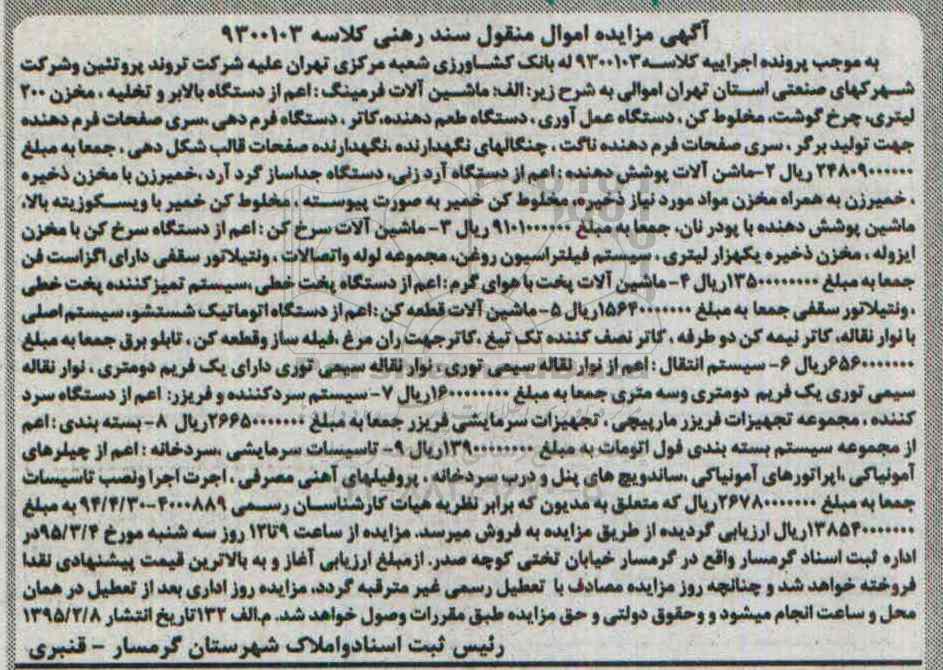 آگهی مزایده اموال منقول سند رهنی کلاسه ۹۳۰۰۱۰۳
به موجب پرونده اجراییه کلاسه۹۳۰۰۱۰۳ له بانک کشاورزی شعبه مرکزی تهران علیه شرکت تروند پروتئین وشرکت
شهرکهای صنعتی استان تهران اموالی به شرح زیر: الف: ماشین آلات فرمینگ : اعم از دستگاه بالابر و تخلیه ، مخزن ۲۰۰
لیتری، چرخ گوشت، مخلوط کن ، دستگاه عمل آوری ، دستگاه طعم دهنده،کاتر ، دستگاه فرم دهی ،سری صفحات فرم دهنده
جهت تولید برگر ، سری صفحات فرم دهنده ناگت ، چنگالهای نگهدارنده ،نگهدارنده صفحات قالب شکل دهی ، جمعا به مبلغ
ریال ۲-ماشن آلات پوشش دهنده : اعم از دستگاه آرد زنی، دستگاه جداساز گرد آرد ،خمیرزن با مخزن ذخیره
، خمیرزن به همراه مخزن مواد مورد نیاز ذخیره، مخلوط کن خمیر به صورت پیوسته ، مخلوط کن خمیر با ویسکوزیته بالا،
ماشین پوشش دهنده با پودر نان، جمعا به مبلغ ریال ۳- ماشین آلات سرخ کن : اعم از دستگاه سرخ کن با مخزن
ایزوله ، مخزن ذخیره یکهزار لیتری ، سیستم فیلتراسیون روغن، مجموعه لوله واتصالات ، ونتیلاتور سقفی دارای اگزاست فن
جمعا به مبلغ ریال ۴- ماشین آلات پخت با هوای گرم : اعم از دستگاه پخت خطی ،سیستم تمیزکننده پخت خطی
، ونتیلاتور سقفی جمعا به مبلغ ریال ۵- ماشین آلات قطعه کن : اعم از دستگاه اتوماتیک شستشو، سیستم اصلی
با نوار نقاله، کاتر نیمه کن دو طرفه ، کاتر نصف کننده تک تیغ ،کاترجهت ران مرغ ،فیله ساز وقطعه کن ، تابلو برق جمعا به مبلغ
ریال ۶- سیستم انتقال : اعم از نوار نقاله سیمی توری ، نوار نقاله سیمی توری دارای یک فریم دومتری ، نوار نقاله
سیمی توری یک فریم دومتری وسه متری جمعا به مبلغ ریال ۷- سیستم سردکننده و فریزر: اعم از دستگاه سرد
کننده ، مجموعه تجهیزات فریزر مارپیچی ، تجهیزات سرمایشی فریزر جمعا به مبلغ ریال ۸- بسته بندی : اعم
از مجموعه سیستم بسته بندی فول اتومات به مبلغ ریال ۹- تاسیسات سرمایشی ،سردخانه : اعم از چیلرهای
آمونیاکی ،اپراتورهای آمونیاکی ،ساندویچ های پنل و درب سردخانه ، پروفیلهای آهنی مصرفی ، اجرت اجرا ونصب تاسیسات
جمعا به مبلغ ریال که متعلق به مدیون که برابر نظریه هیات کارشناسان رسمی ۴۰۰۰۸۸۹-۹۴/۴/۳۰ به مبلغ
ریال ارزیابی گردیده از طریق مزایده به فروش میرسد. مزایده از ساعت ۹تا۱۲ روز سه شنبه مورخ ۹۵/۳/۴در
اداره ثبت اسناد گرمسار واقع در گرمسار خیابان تختی کوچه صدر. ازمبلغ ارزیابی آغاز و به بالاترین قیمت پیشنهادی نقدا
فروخته خواهد شد و چنانچه روز مزایده مصادف با تعطیل رسمی غیر مترقبه گردد، مزایده روز اداری بعد از تعطیل در همان
محل و ساعت انجام میشود و وحقوق دولتی و حق مزایده طبق مقررات وصول خواهد شد. م.الف ۱۳۲تاریخ انتشار ۱۳۹۵/۲/۸
رئیس ثبت اسنادواملاک شهرستان گرمسار - قنبری